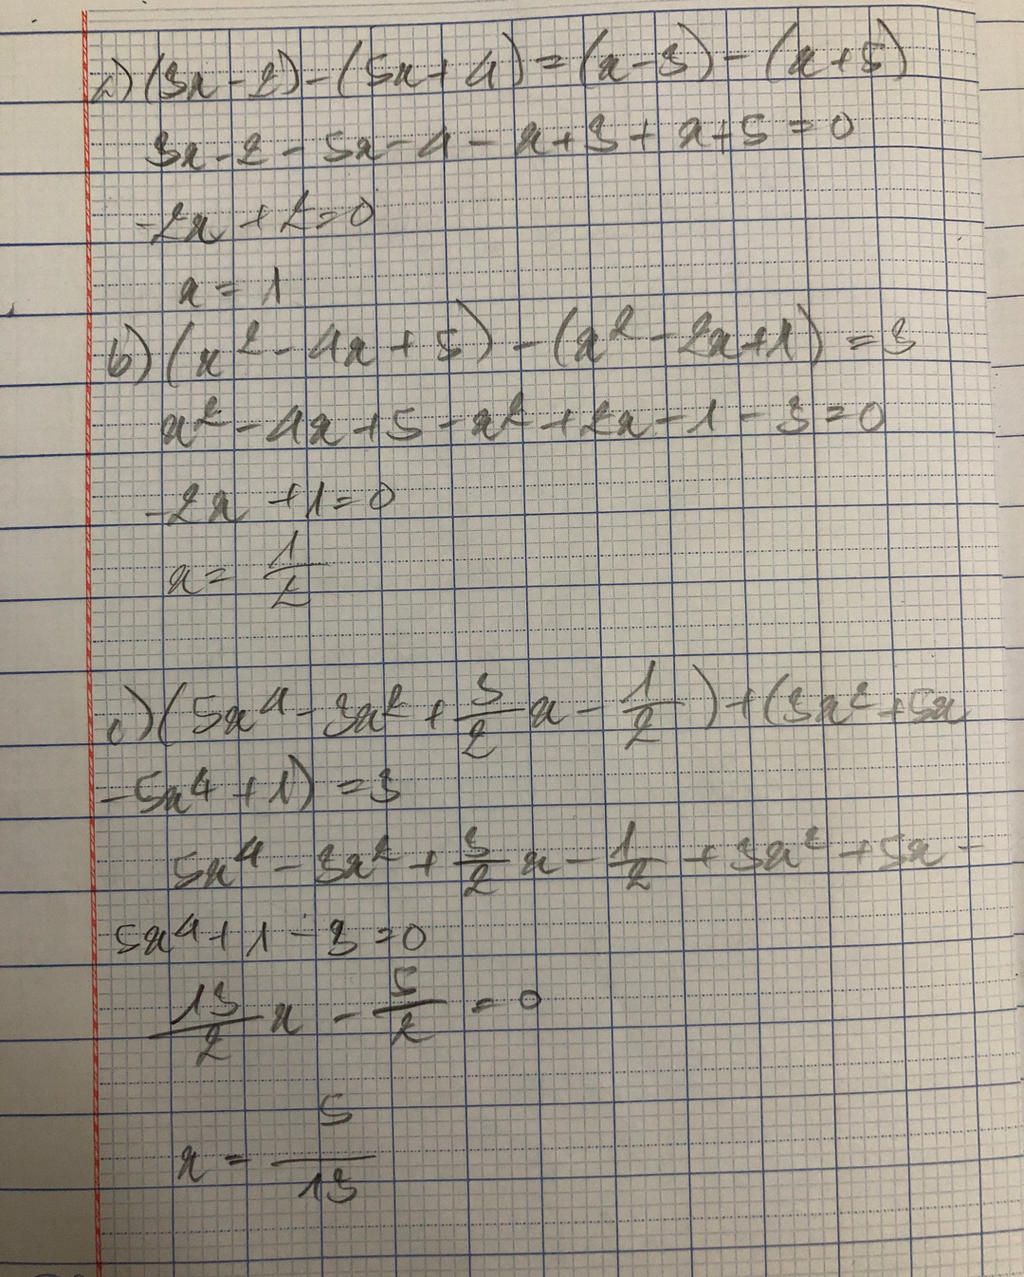 a) (3x - 2) - (5x + 4) = (x - 3) - (x + 5)
3x - 2 - 5x - 4 - x + 3 + x + 5 = 0
-2x + 2 = 0
x = 1
b) (x² - 4x + 5) - (x² - 2x + 1) = 3
x² - 4x + 5 - x² + 2x - 1 - 3 = 0
-2x + 1 = 0
x = 1/2
c) (5x⁴ - 3x² + 3/2 x - 1/2) + (3x² + 5x
- 5x⁴ + 1) = 3
5x⁴ - 3x² + 3/2 x - 1/2 + 3x² + 5x -
5x⁴ + 1 - 3 = 0
13/2 x - 5/2 = 0
x = 5/13